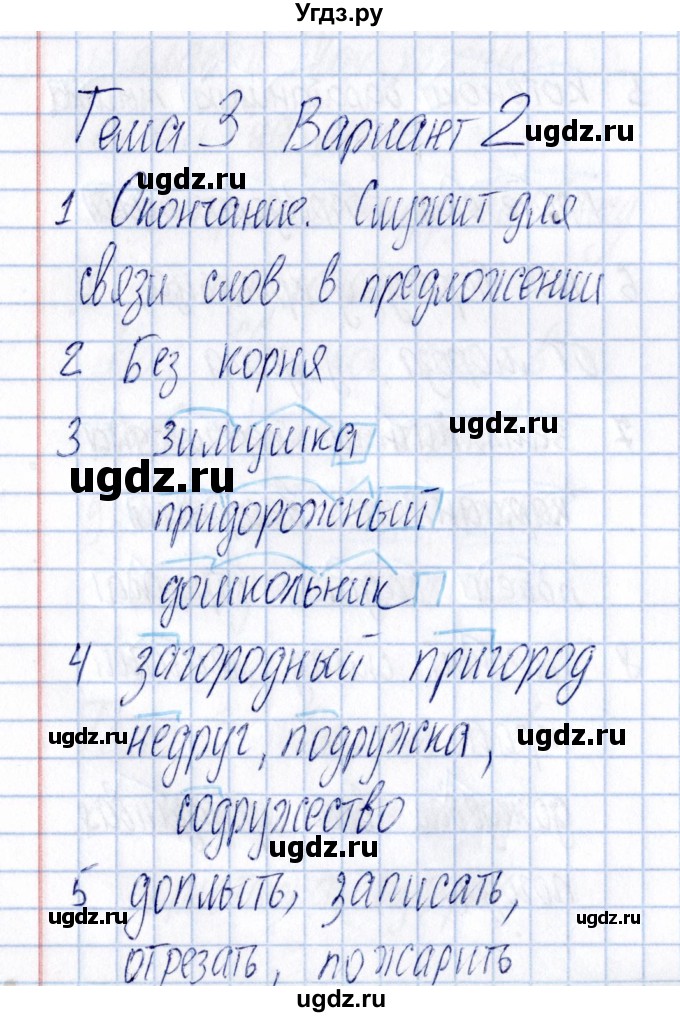 Угдз.ру
Тема 3 Вариант 2
ugdz.ru
ugdz.ru
1 Окончание. Служит для
связи слов в предложении
2 Без корня
3 зимушка
ugdz.ru
ugdz.ru
придорожный
дошкольник
4 загородный пригород
ugdz.ru
недруг, подружка,
ugdz.ru
содружество
ugdz.ru
5 доплыть, записать,
ugdz.ru
ugdz.ru
отрезать, пожарить
ugdz.ru